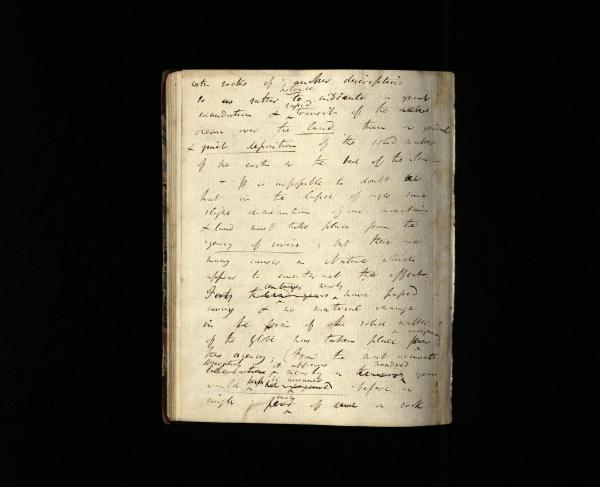 with rocks of another description
so as rather to indicate a great
inundation & rapid transit of the
ocean over the land, than a gradual
& quiet deposition of the solid matter
of the earth in the bed of the Sea
- It is impossible to doubt
that in the lapse of ages some
slight diminution of our mountains
& land must take place from the
agency of rivers; but there are
many causes in Nature which
appear to counteract this effect
Forty centuries nearly have passed
away & no material change
in the form of the solid matter
of the Globe has taken place from
this agency; (From the most accurate
observations it appears nearly a hundred years
would be before a
single of a rock